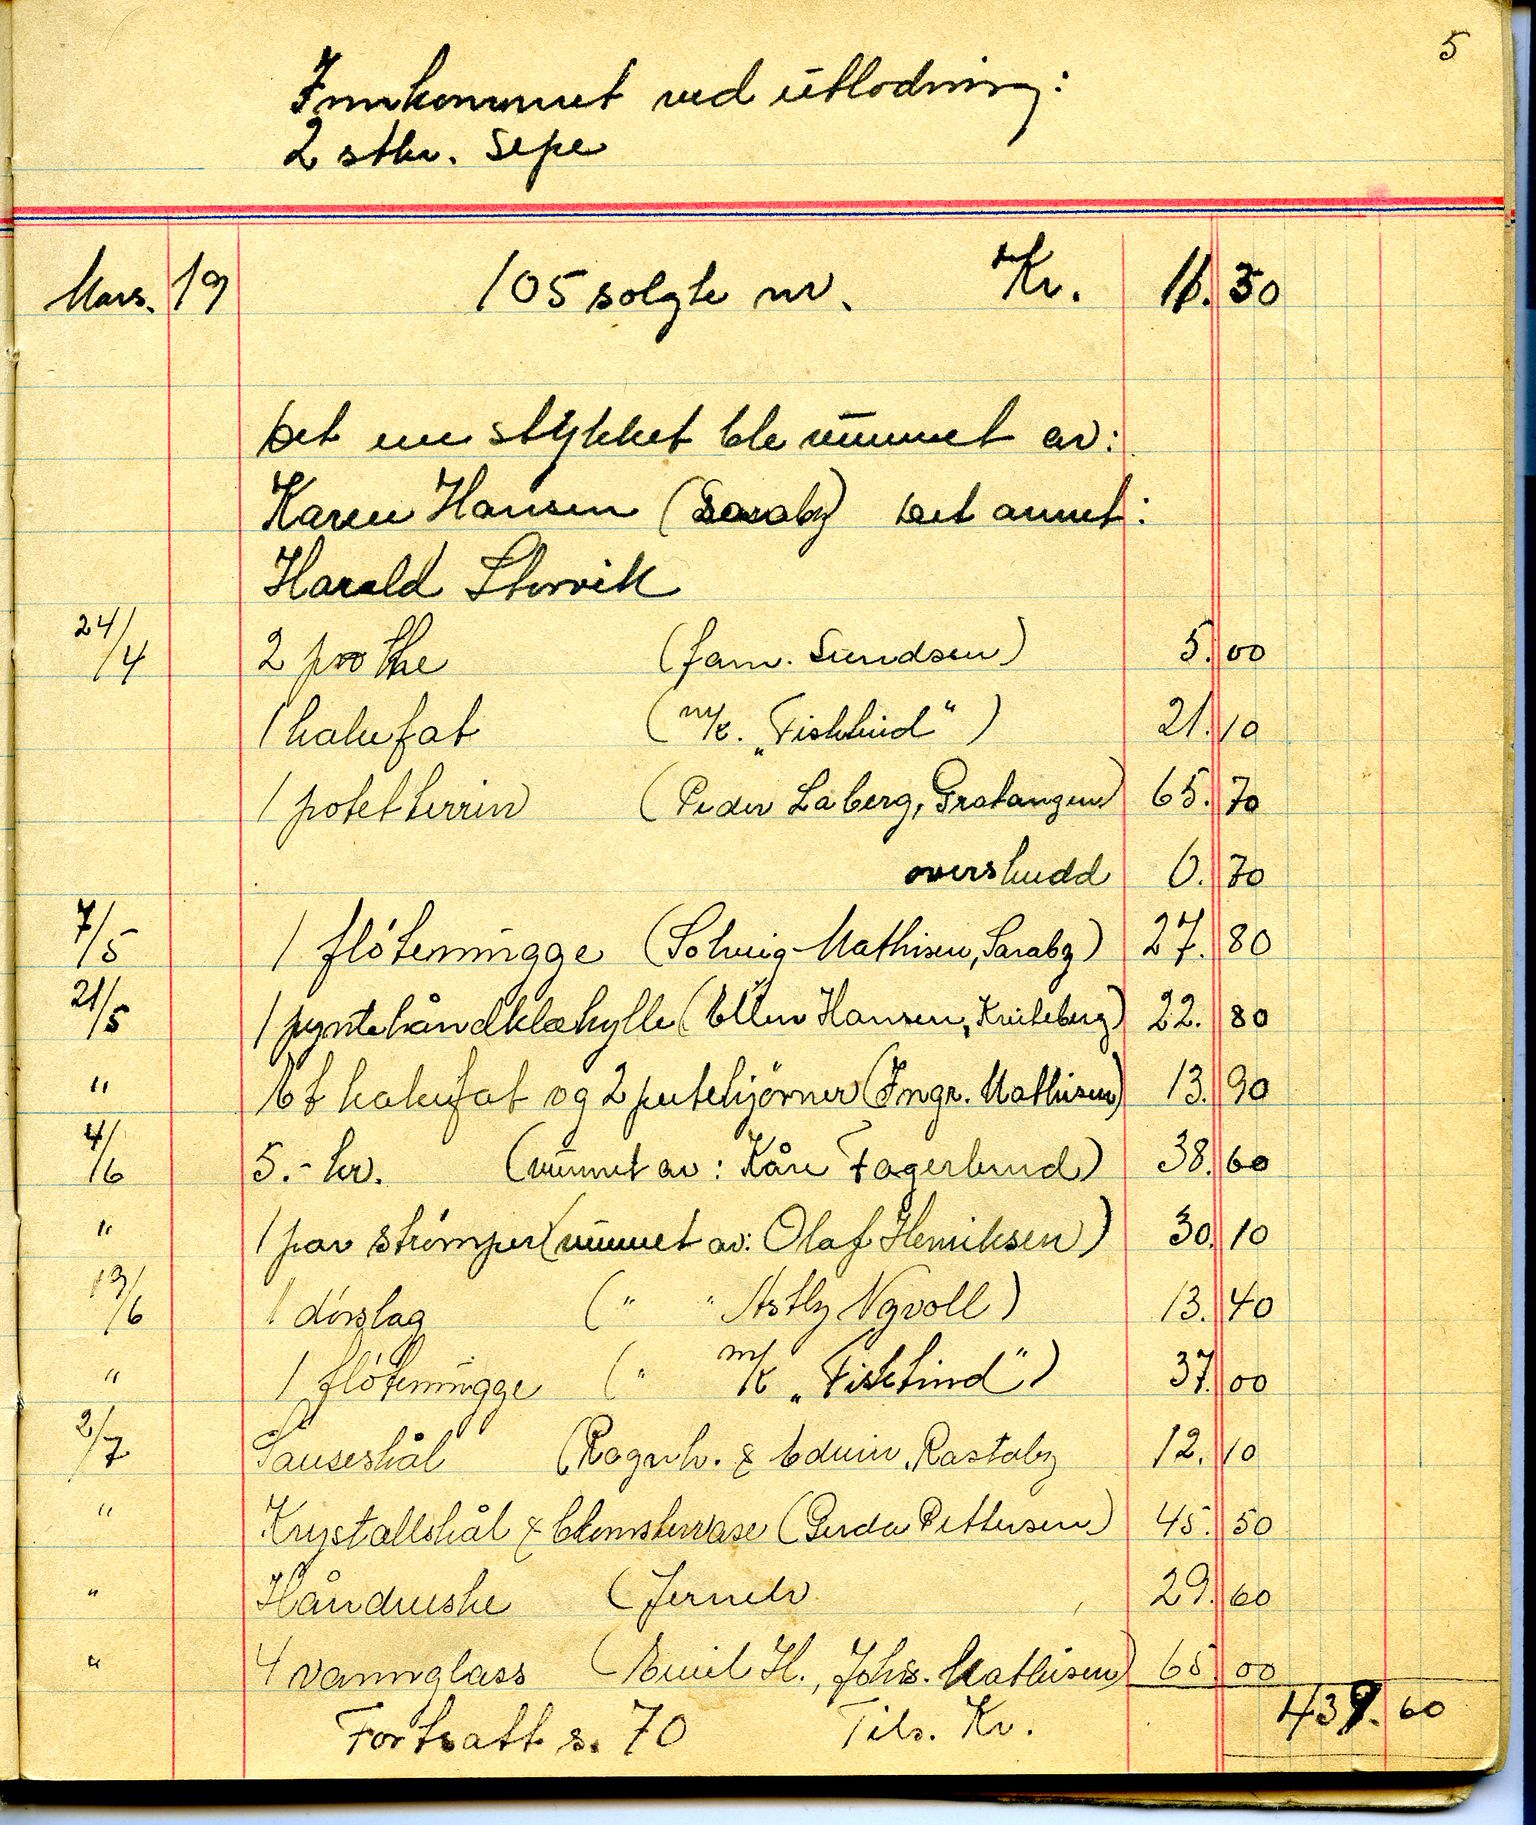 5
Innkommet ved utlodning:
2 stkr. Sepe
Mars. 19 105 solgte nr. Kr. 11. 30
Det ene stykket ble vunnet av:
Karen Hansen (Saraby) Det annet:
Harald Storvik
24/4 2 pr the (fam. Sundsen) 5. 00
1 kakefat (m/k. „Fiskhind“) 21. 10
1 potetterrin (Peder Laberg, Gratangen) 65. 70
overskudd 0. 70
7/5 1 fløtemugge (Solveig Mathisen, Saraby) 27. 80
21/5 1 pyntehåndklehylle (Ellen Hansen, Kvileberg) 22. 80
" Et kakefat og 2 putehjørner (Ingr. Mathisen) 13. 90
4/6 5.- kr. (vunnet av: Kåre Fagerlund) 38. 60
" 1 par strømper (vunnet av: Olaf Henriksen) 30. 10
13/6 1 dørslag (" " Astly Nyvoll) 13. 40
" 1 fløtemugge (" m/k „Fiskhind") 37. 00
2/7 Sauseskål (Ragnh. & Edvin, Rastaby 12. 10
" Krystallskål & blomstervase (Gerda Pettersen) 45. 50
" Håndveske (Jernelv 29. 60
" 4 vannglass (Emil H., Johs. Mathisen) 65. 00
Fortsatt s. 70 Tils. Kr. 439. 60